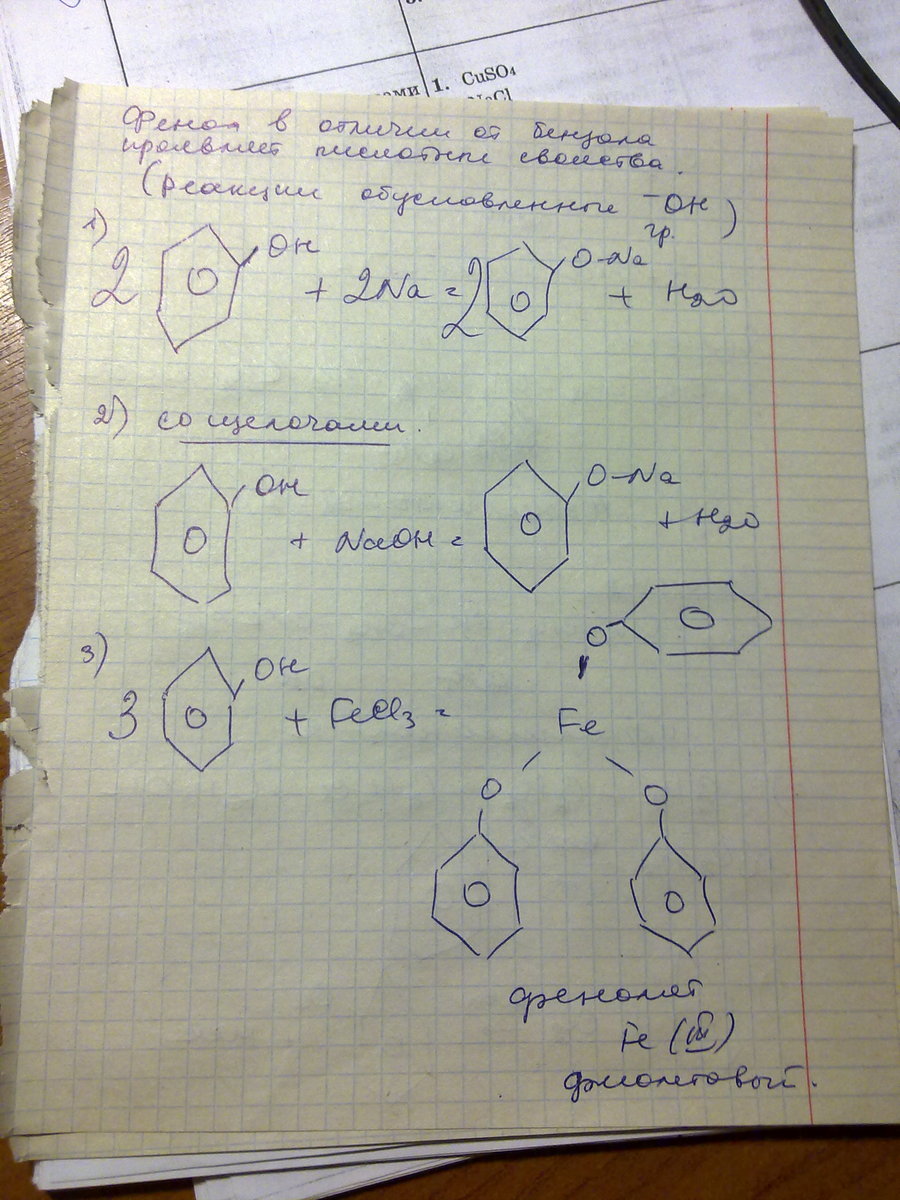 ами 1. CuSO₄
NaCl
Фенол в отличии от бензола
проявляет кислотные свойства.
(реакции обусловленные -OH гр.)
1) 2 OH + 2Na = 2 O-Na + H2O
2) со щелочами.
OH + NaOH = O-Na + H2O
3) 3 OH + FeCl3 =
O
Fe
O O
фенолят
Fe (III)
фиолетовый.